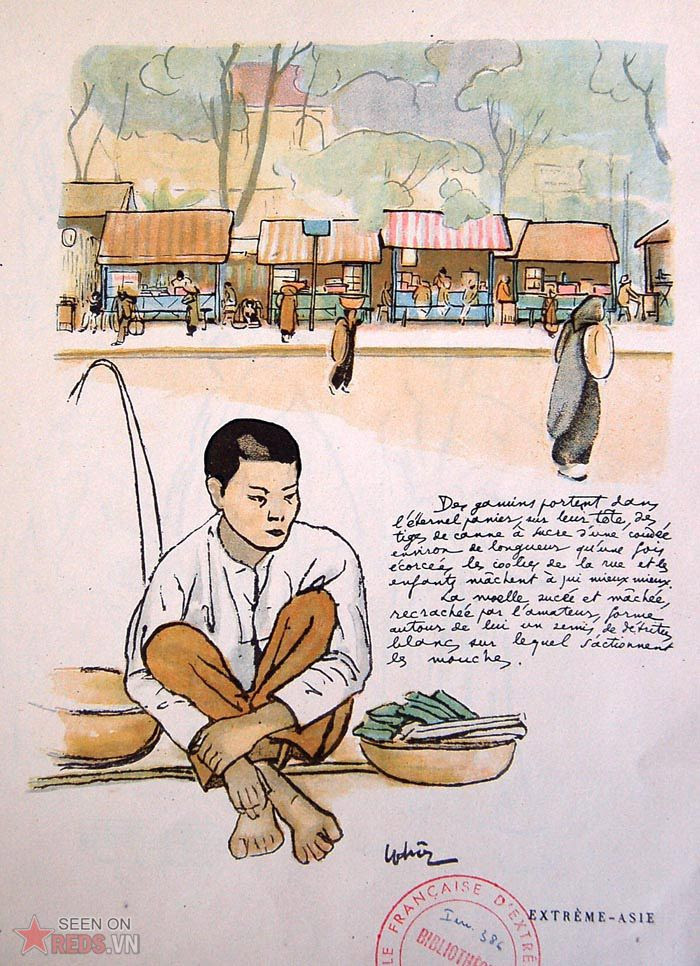 Des gamins portent dans
l'éternel panier, sur leur tête, des
tiges de canne à sucre d'une coudée
environ de longueur qu'une fois
écorcées les coolies de la rue et les
enfants mâchent à qui mieux mieux.
La moelle sucée et mâchée,
recrachée par l'amateur, forme
autour de lui un semis de détritus
blancs sur lequel s'actionnent
les mouches.
LE FRANÇAISE D'EXTRÊ
Inv. 384
BIBLIOTHÈ
EXTRÊME-ASIE
SEEN ON
REDS.VN